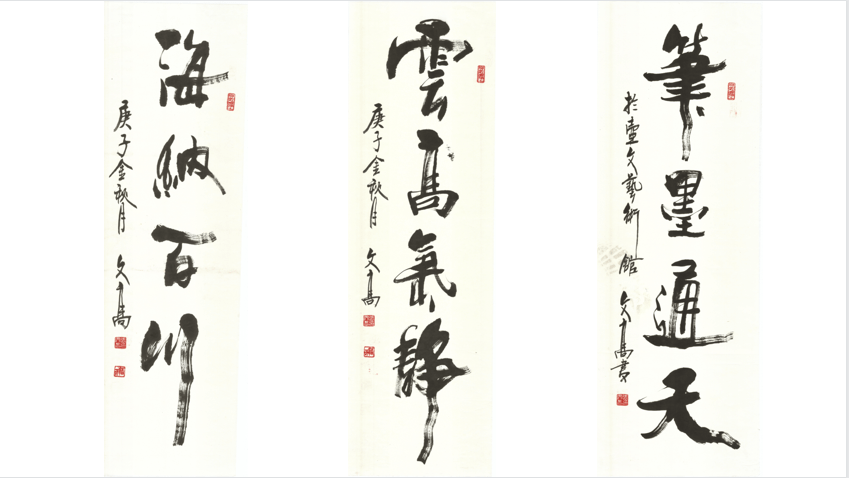 筆墨通天
於壺文藝術館 文高書
雲高氣靜
庚子金秋月 文高
海納百川
庚子金秋月 文高